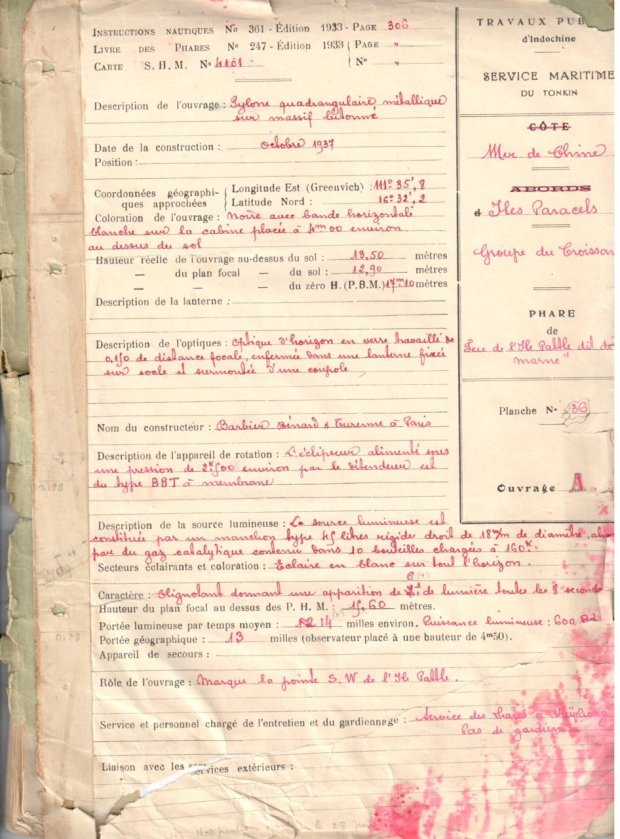 INSTRUCTIONS NAUTIQUES No 361 - Édition 1933 - PAGE 306
LIVRE DES PHARES No 247 - Édition 1933 ( PAGE "
CARTE S. H. M. No 4101. ( No "
Description de l'ouvrage : Pylone quadrangulaire métallique
sur massif bétonné
Date de la construction : octobre 1937
Position :
Coordonnées géographiques approchées { Longitude Est (Greenwich) : 111° 35', 8
Latitude Nord : 16° 32', 2
Coloration de l'ouvrage : Noire avec bande horizontale
blanche sur la cabine placée à 4m00 environ
au dessus du sol
Hauteur réelle de l'ouvrage au-dessus du sol : 13,50 mètres
— du plan focal — du sol : 12,90 mètres
— — — du zéro H. (P.B.M.) 17m10 mètres
Description de la lanterne :
Description de l'optiques : Optique d'horizon en verre travaillé de
0,150 de distance focale, enfermée dans une lanterne fixée
sur socle et surmontée d'une coupole
Nom du constructeur : Barbier Bénard & Turenne à Paris
Description de l'appareil de rotation : L'éclipseur alimenté sous
une pression de environ par le détendeur est
du type BBT à membrane
Description de la source lumineuse : La source lumineuse est
constituée par un manchon type litres rigides droit de 18m/m de diamètre,
par du gaz catalytique contenu dans 10 bouteilles chargées à 160K.
Secteurs éclairants et coloration : Eclaire en blanc sur tout l'horizon.
Caractère : Clignotant donnant une apparition de de lumière toutes les 8 secondes
Hauteur du plan focal au dessus des P. H. M. : 15,60 mètres.
Portée lumineuse par temps moyen : 12 14 milles environ. Puissance lumineuse : 600
Portée géographique : 13 milles (observateur placé à une hauteur de 4m50).
Appareil de secours :
Rôle de l'ouvrage : Marque la pointe S. W de l'Ile Pattle.
Service et personnel chargé de l'entretien et du gardiennage : Service des Phares à
Pas de gardien
Liaison avec les services extérieurs :
TRAVAUX PUB
d'Indochine
SERVICE MARITIME
DU TONKIN
CÔTE
Mer de Chine
ABORDS
d Iles Paracels
Groupe du Croissan
PHARE
de
Feu de l'Ile Pattle dit
Planche No 36
Ouvrage A